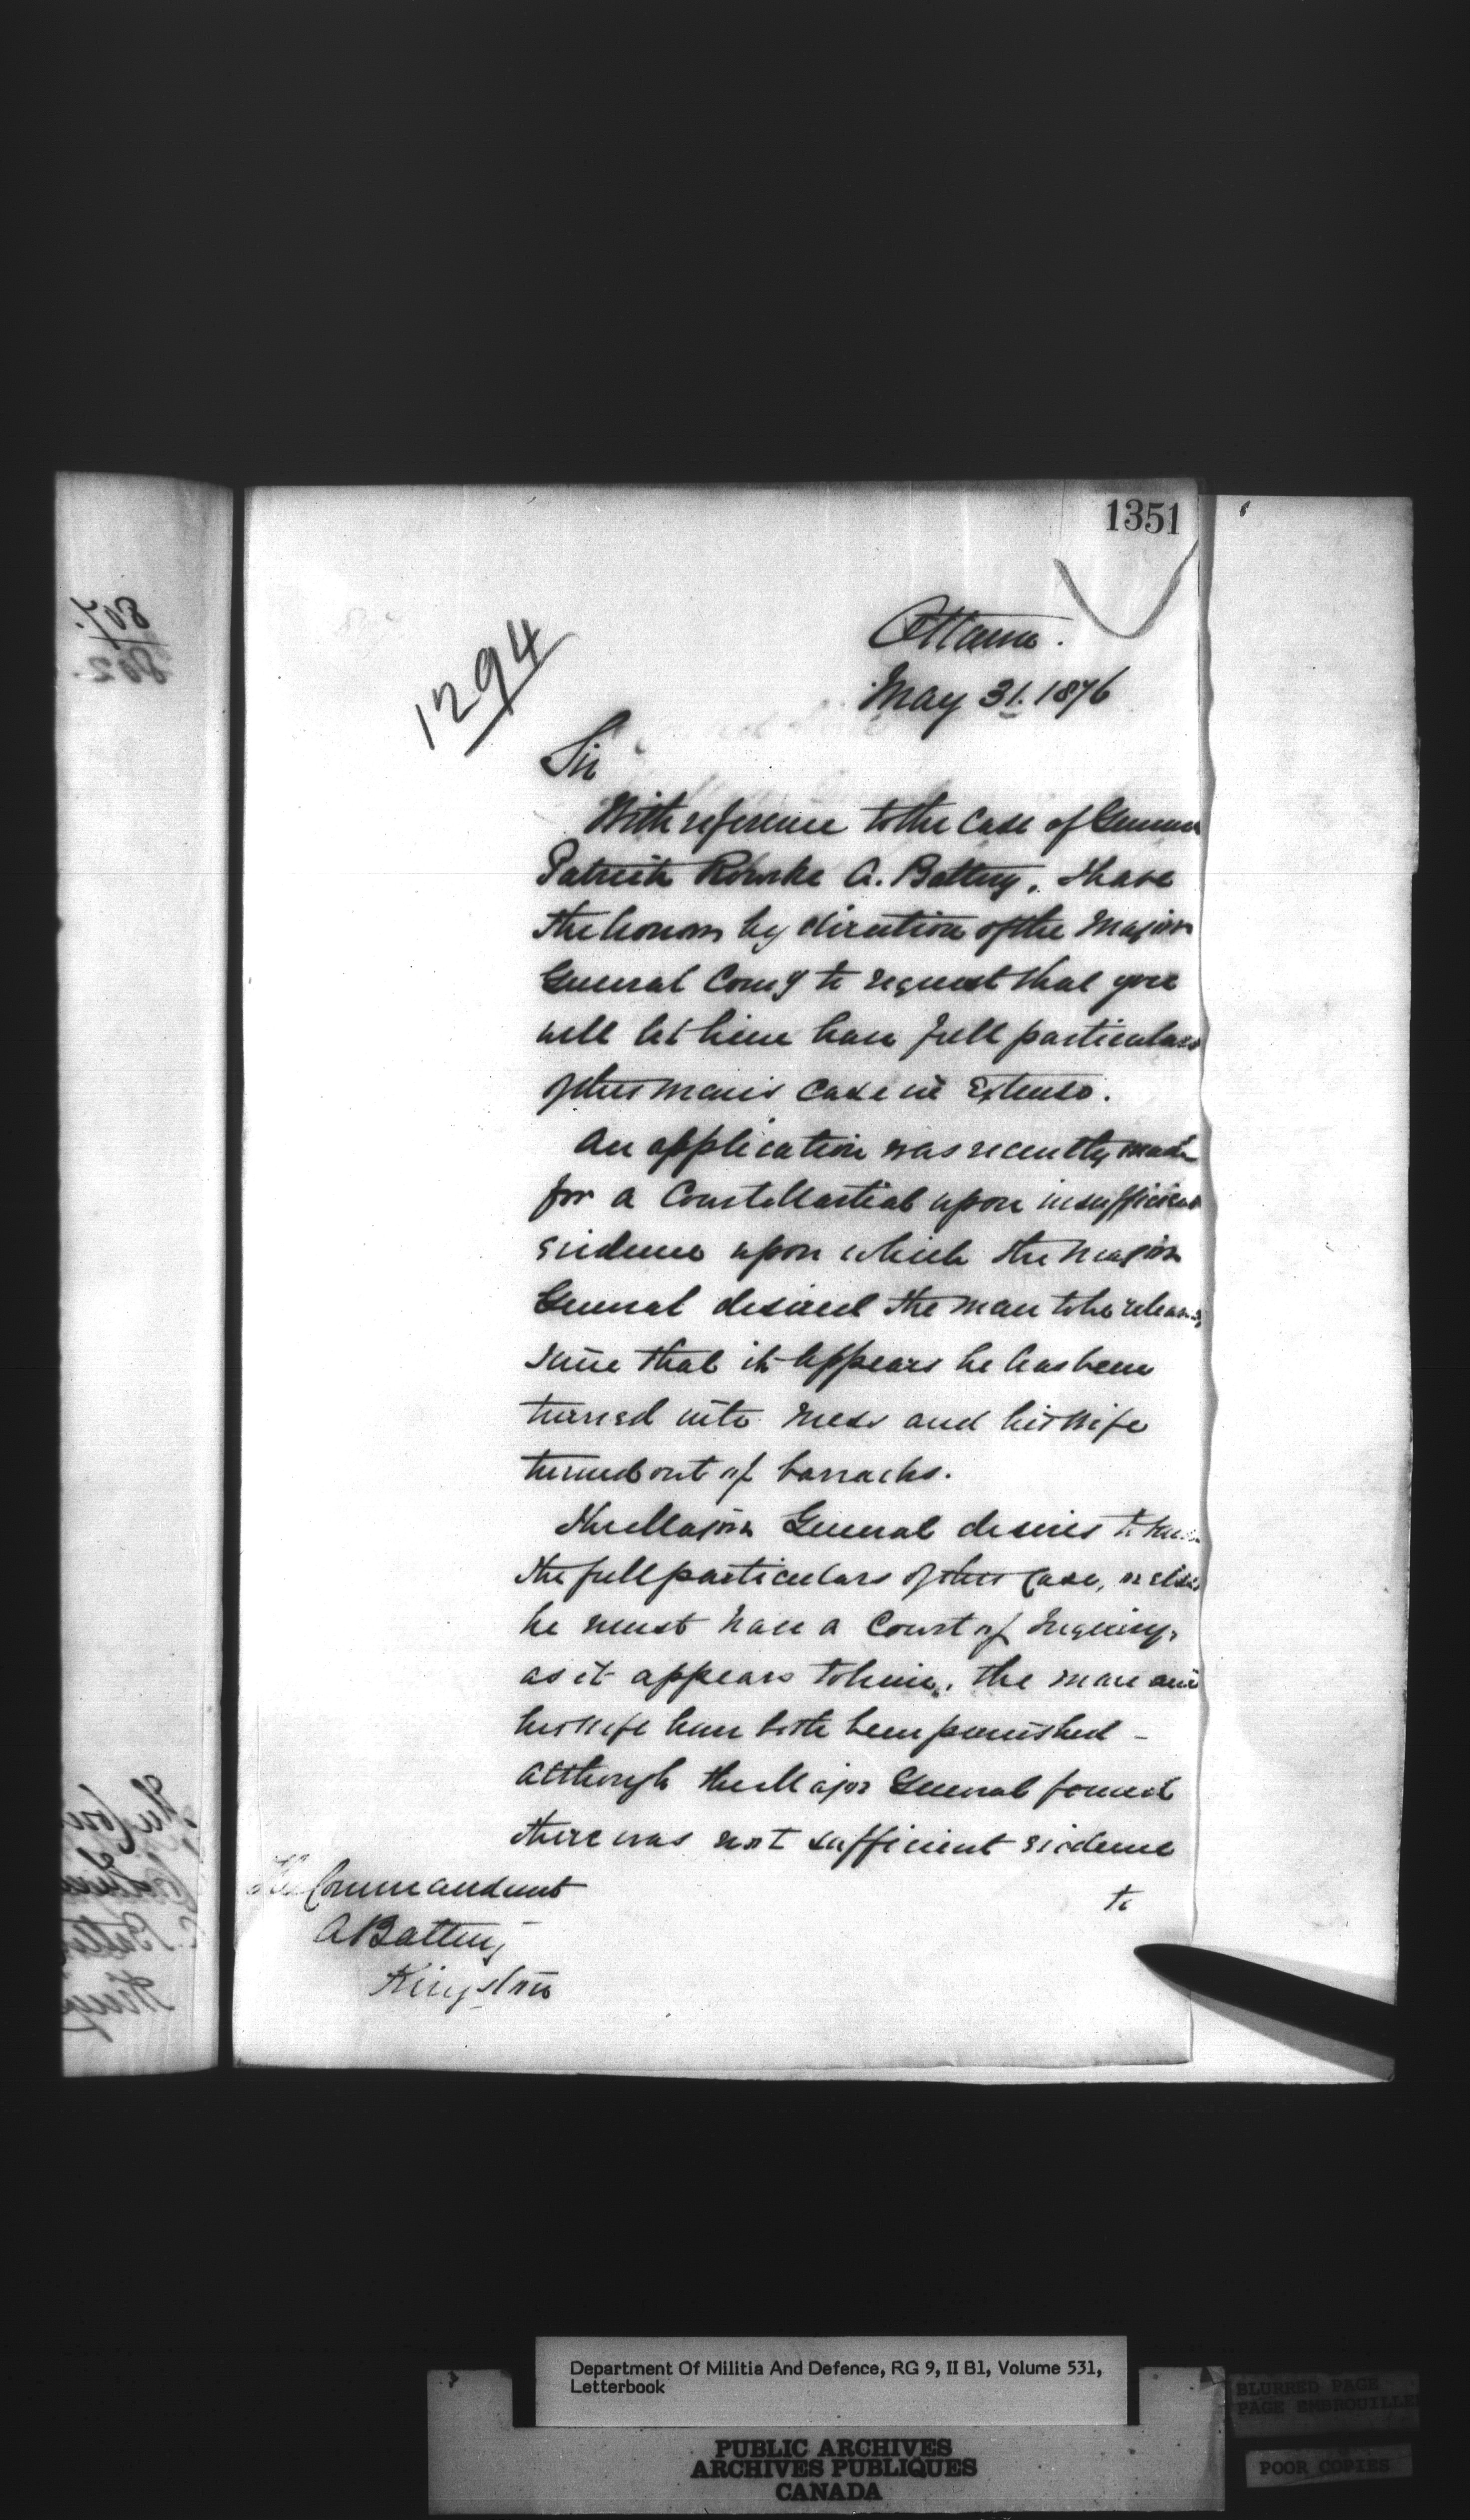 1351
1294
Ottawa.
May 31. 1876
Sir
With reference to the case of Gunner
Patrick Rourke A. Battery, I have
the honor by direction of the Major
General Comg to request that you
will let him have full particulars
of this man's case in Extenso.
An application was recently made
for a Court Martial upon insufficient
evidence upon which the Major
General desired the man to be released
since that it appears he has been
turned into mess and his wife
turned out of barracks.
The Major General desires to know
the full particulars of this case, or else
he must have a Court of Inquiry,
as it appears to him, the man and
his wife have both been punished -
although the Major General found
there was not sufficient evidence
to
The Commandant
A Battery
Kingston
807.
802.
Department Of Militia And Defence, RG 9, II B1, Volume 531,
Letterbook
PUBLIC ARCHIVES
ARCHIVES PUBLIQUES
CANADA
BLURRED PAGE
PAGE EMBROUILLEE
POOR COPIES